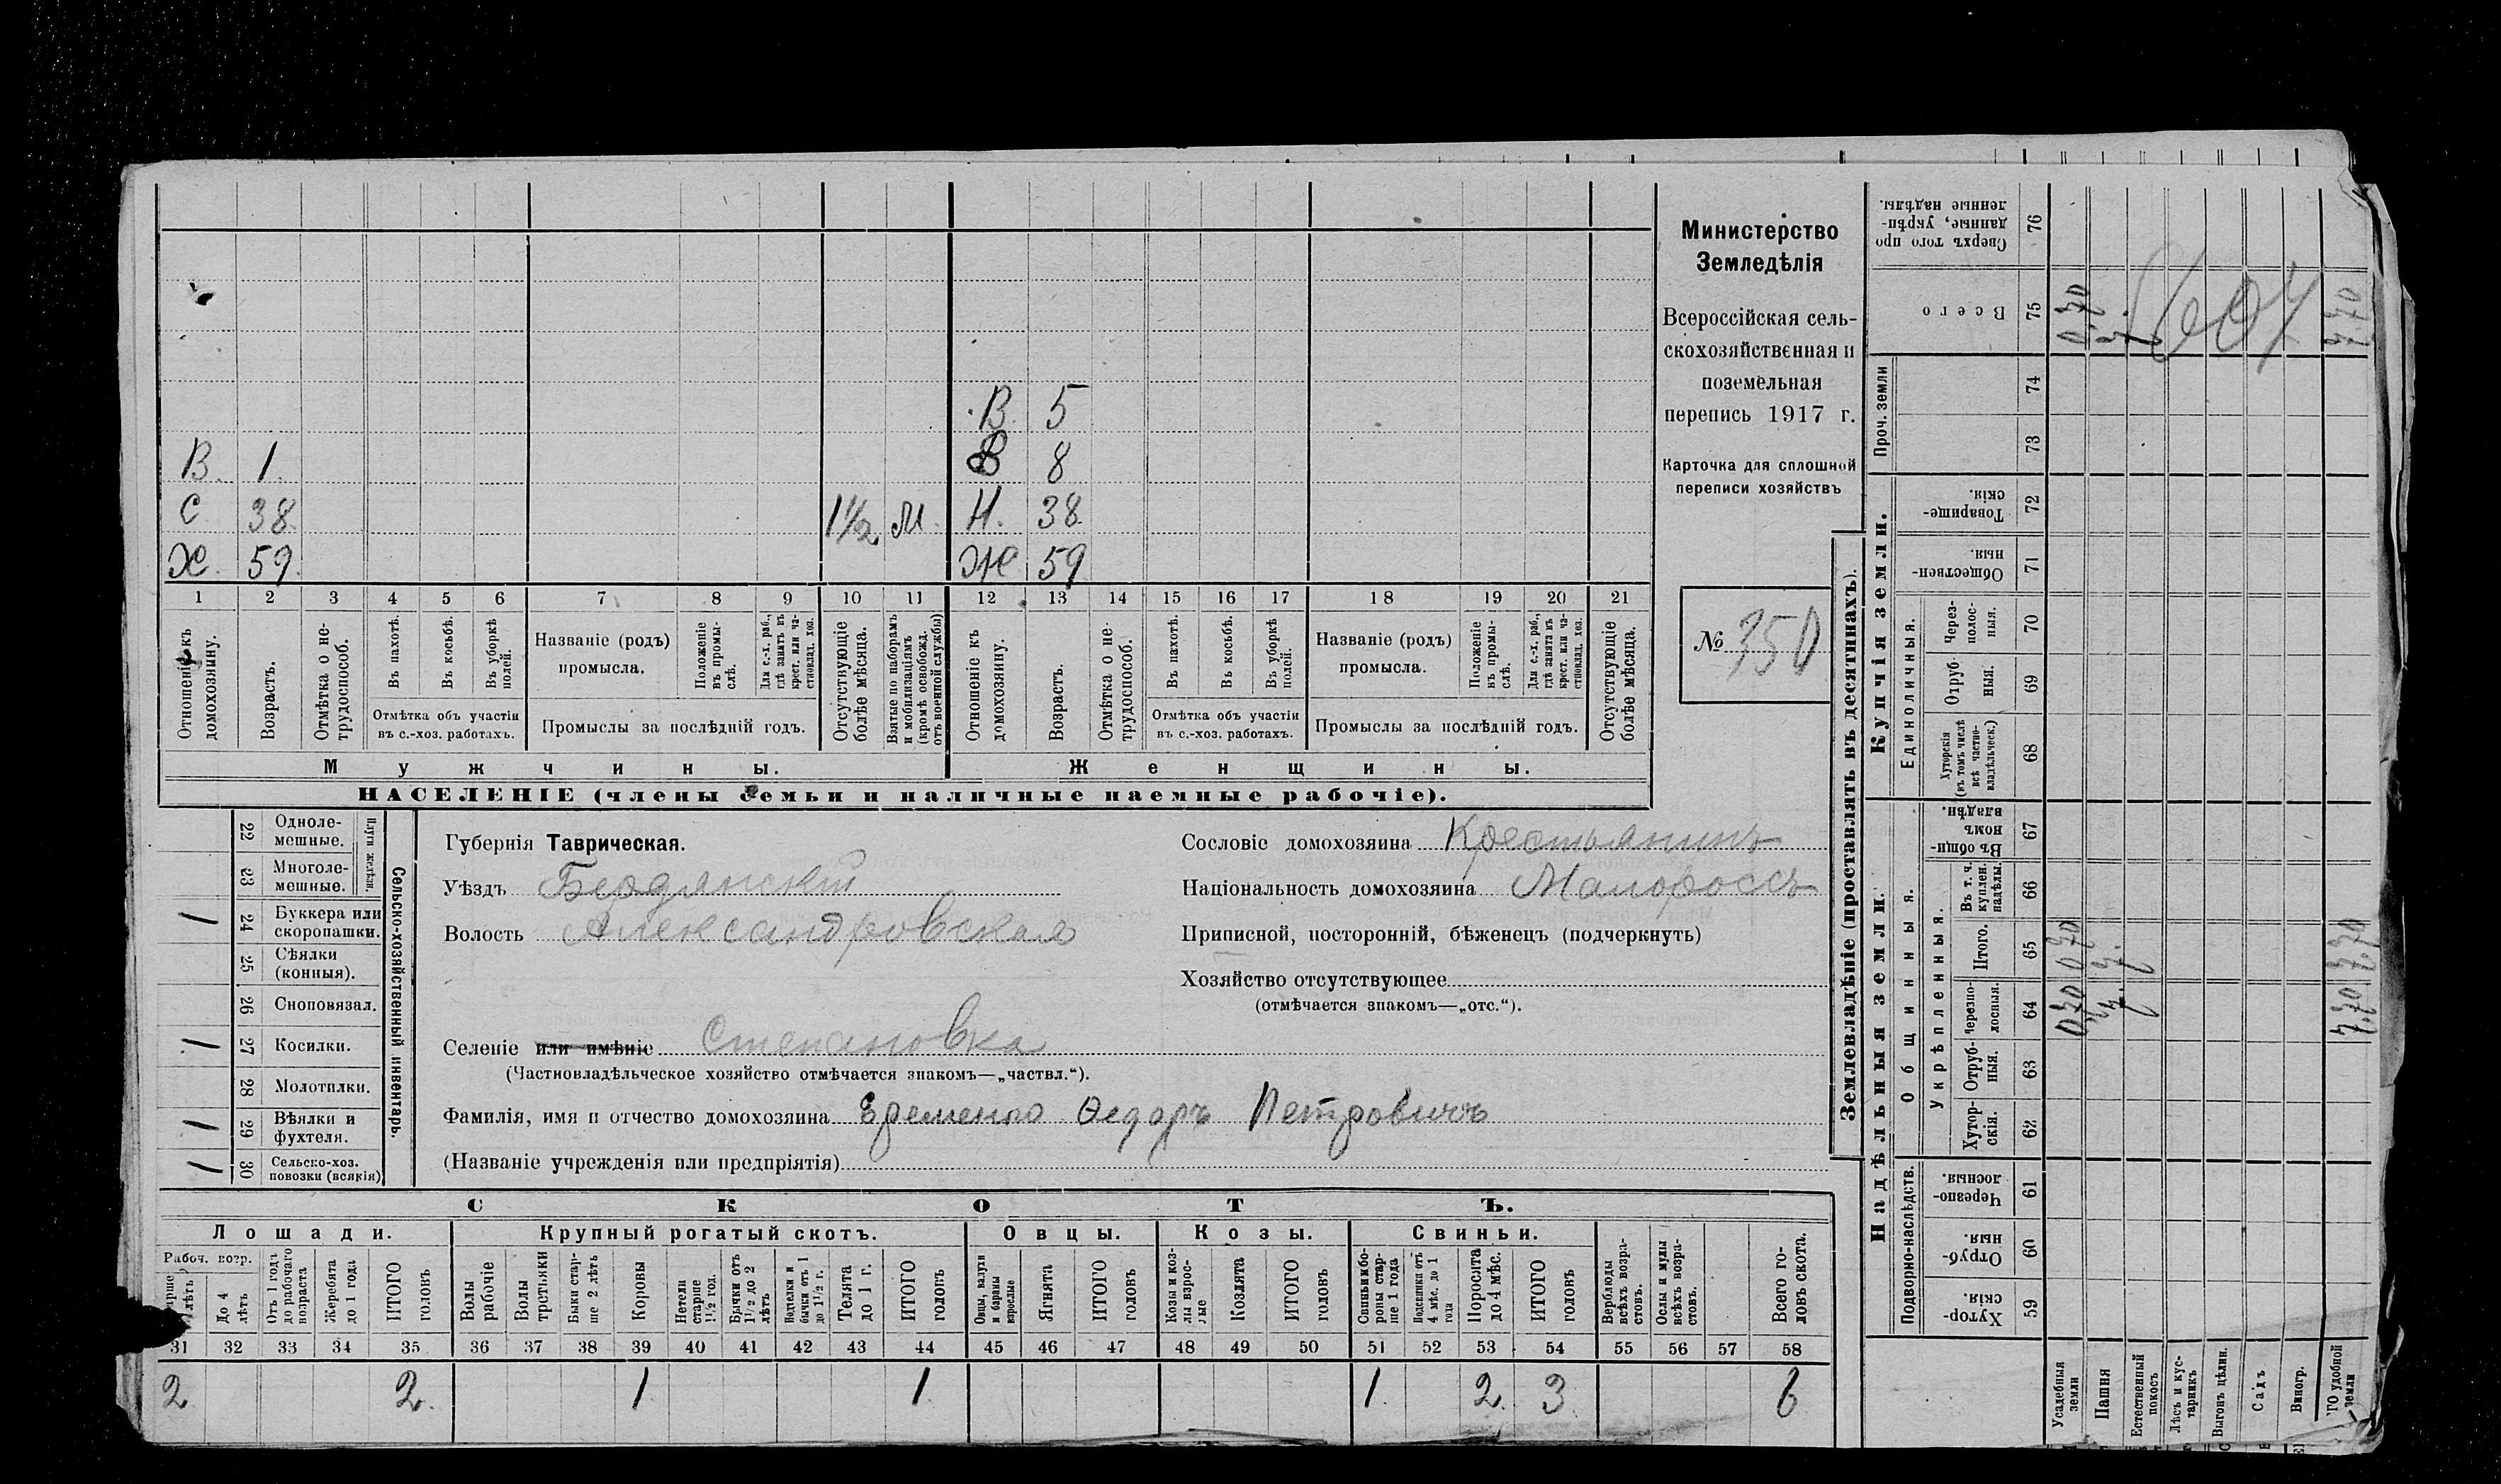 Министерство
Земледѣлія
Всероссійская сель-
скохозяйственная и
поземельная
перепись 1917 г.
Карточка для сплошной
переписи хозяйствъ
№ 350
В 5
В. 1. В 8
С 38 1½ М. Н. 38
Х. 59. Ж 59
1 2 3 4 5 6 7 8 9 10 11 12 13 14 15 16 17 18 19 20 21
Отношеніе къ домохозяину.
Возрастъ.
Отмѣтка о не-трудоспособ.
Въ пахотѣ.
Въ косьбѣ.
Въ уборкѣ полей.
Отмѣтка объ участіи
въ с.-хоз. работахъ.
Названіе (родъ)
промысла.
Положеніе въ промы-слѣ.
Для с.-х. раб., гдѣ занятъ въ крест. или ча-стновлад. хоз.
Промыслы за послѣдній годъ.
Отсутствующіе болѣе мѣсяца.
Взятые по наборамъ и мобилизаціямъ (кромѣ освобожд. отъ военной службы)
Отношеніе къ домохозяину.
Возрастъ.
Отмѣтка о не-трудоспособ.
Въ пахотѣ.
Въ косьбѣ.
Въ уборкѣ полей.
Отмѣтка объ участіи
въ с.-хоз. работахъ.
Названіе (родъ)
промысла.
Положеніе въ промы-слѣ.
Для с.-х. раб., гдѣ занятъ въ крест. или ча-стновлад. хоз.
Промыслы за послѣдній годъ.
Отсутствующіе болѣе мѣсяца.
Мужчины. Женщины.
НАСЕЛЕНІЕ (члены семьи и наличные наемные рабочіе).
Сельско-хозяйственный инвентарь.
Плуги желѣзн.
22 Одноле-мешные.
23 Многоле-мешные.
1 24 Буккера или скоропашки.
25 Сѣялки (конныя).
26 Сноповязал.
1 27 Косилки.
28 Молотилки.
1 29 Вѣялки и фухтеля.
1 30 Сельско-хоз. повозки (всякія)
Губернія Таврическая.
Уѣздъ Бердянскій
Волость Александровская
Селеніе или имѣніе Степановка
(Частновладѣльческое хозяйство отмѣчается знакомъ—„частвл.“).
Фамилія, имя и отчество домохозяина Еременко Ѳедоръ Петровичъ
(Названіе учрежденія или предпріятія)
Сословіе домохозяина Крестьянинъ
Національность домохозяина Малороссъ
Приписной, посторонній, бѣженецъ (подчеркнуть)
Хозяйство отсутствующее
(отмѣчается знакомъ—„отс.“).
СКОТЪ.
Лошади. Крупный рогатый скотъ. Овцы. Козы. Свиньи.
Рабоч. возр.
До 4 лѣтъ
Отъ 1 года до рабочаго возраста
Жеребята до 1 года
ИТОГО головъ
Волы рабочіе
Волы третьяки
Быки стар-ше 2 лѣтъ
Коровы
Нетели старше 1½ год.
Бычки отъ 1½ до 2 лѣтъ
Подтелки и бычки отъ 1 до 1½ г.
Телята до 1 г.
ИТОГО головъ
Овцы, валухи и бараны взрослые
Ягнята
ИТОГО головъ
Козы и коз-лы взрос-лые
Козлята
ИТОГО головъ
Свиньи и бо-ровы стар-ше 1 года
Подсвинки отъ 4 мѣс. до 1 года
Поросята до 4 мѣс.
ИТОГО головъ
Верблюды всѣхъ возра-стовъ.
Ослы и мулы всѣхъ возра-стовъ.
Всего го-ловъ скота.
31 32 33 34 35 36 37 38 39 40 41 42 43 44 45 46 47 48 49 50 51 52 53 54 55 56 57 58
2 2. 1 1. 1. 2. 3. 6
Землевладѣніе (проставлять въ десятинахъ).
Сверхъ того про данные, укрѣп-ленные надѣлы. 76
Всего 75 0.70 7. 7.70
Проч. земли 74
73
Купчія земли.
Товарище-скія. 72
Обществен-ныя. 71
Единоличныя.
Через-полос-ныя. 70
Отруб-ныя. 69
Хуторскія (въ томъ числѣ всѣ частно-владѣльческ.) 68
Надѣльныя земли.
Общинныя.
Въ общин-номъ владѣн. 67
Укрѣпленныя.
Въ т. ч. куплен. надѣлы. 66
Итого. 65 0.70 7. 7.70
Черезпо-лосныя. 64 0.70 7. 7.70
Отруб-ныя. 63
Хутор-скія. 62
Подворно-наслѣдств.
Черезпо-лосныя 61
Отруб-ныя. 60
Хутор-скія. 59
Усадебныя земли
Пашня
Естественный покосъ
Лѣсъ и кус-тарникъ
Выгонъ цѣлин.
Садъ
Виногр.
удобной земли